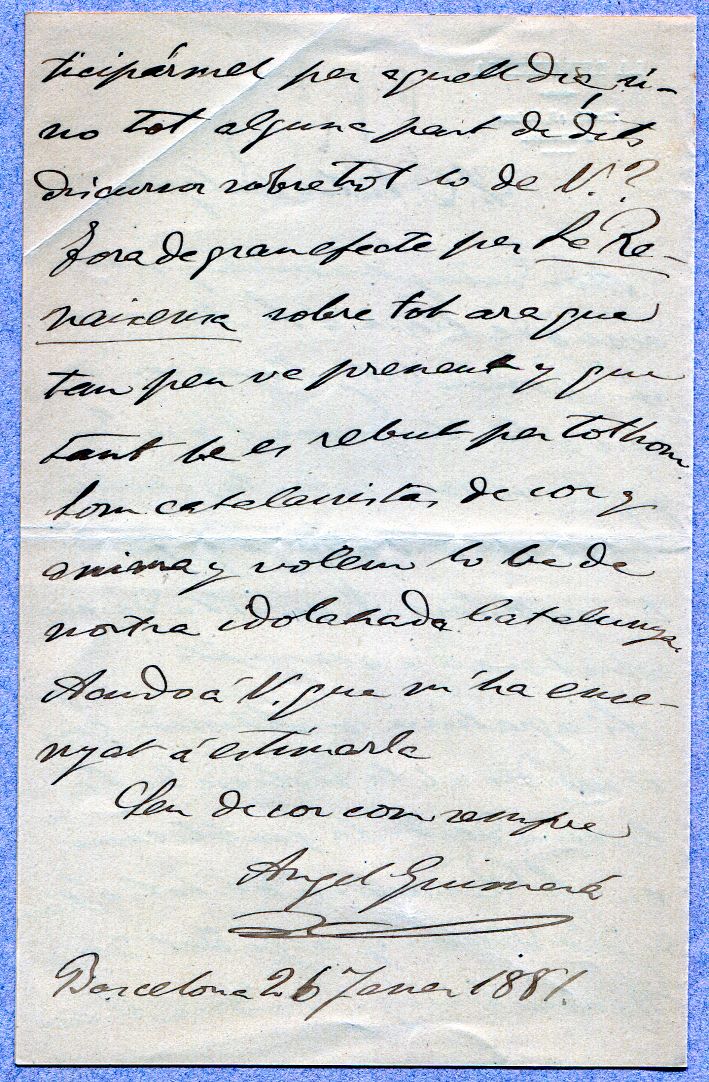 ticipármel per aquell dia, si-
no tot alguna part de dits
discursos sobretot lo de V.?
Fora de gran efecte per La Re-
naixensa sobre tot ara que
tan peu va prenent y que
tant be es rebut per tothom.
Som catalanistas de cor y
anima y volem lo be de
nostra idolatrada Catalunya.
Acudo á V. que m'ha ense-
nyat á estimarla
Seu de cor com sempre
Angel Guimerá
Barcelona 26 Janer 1881.